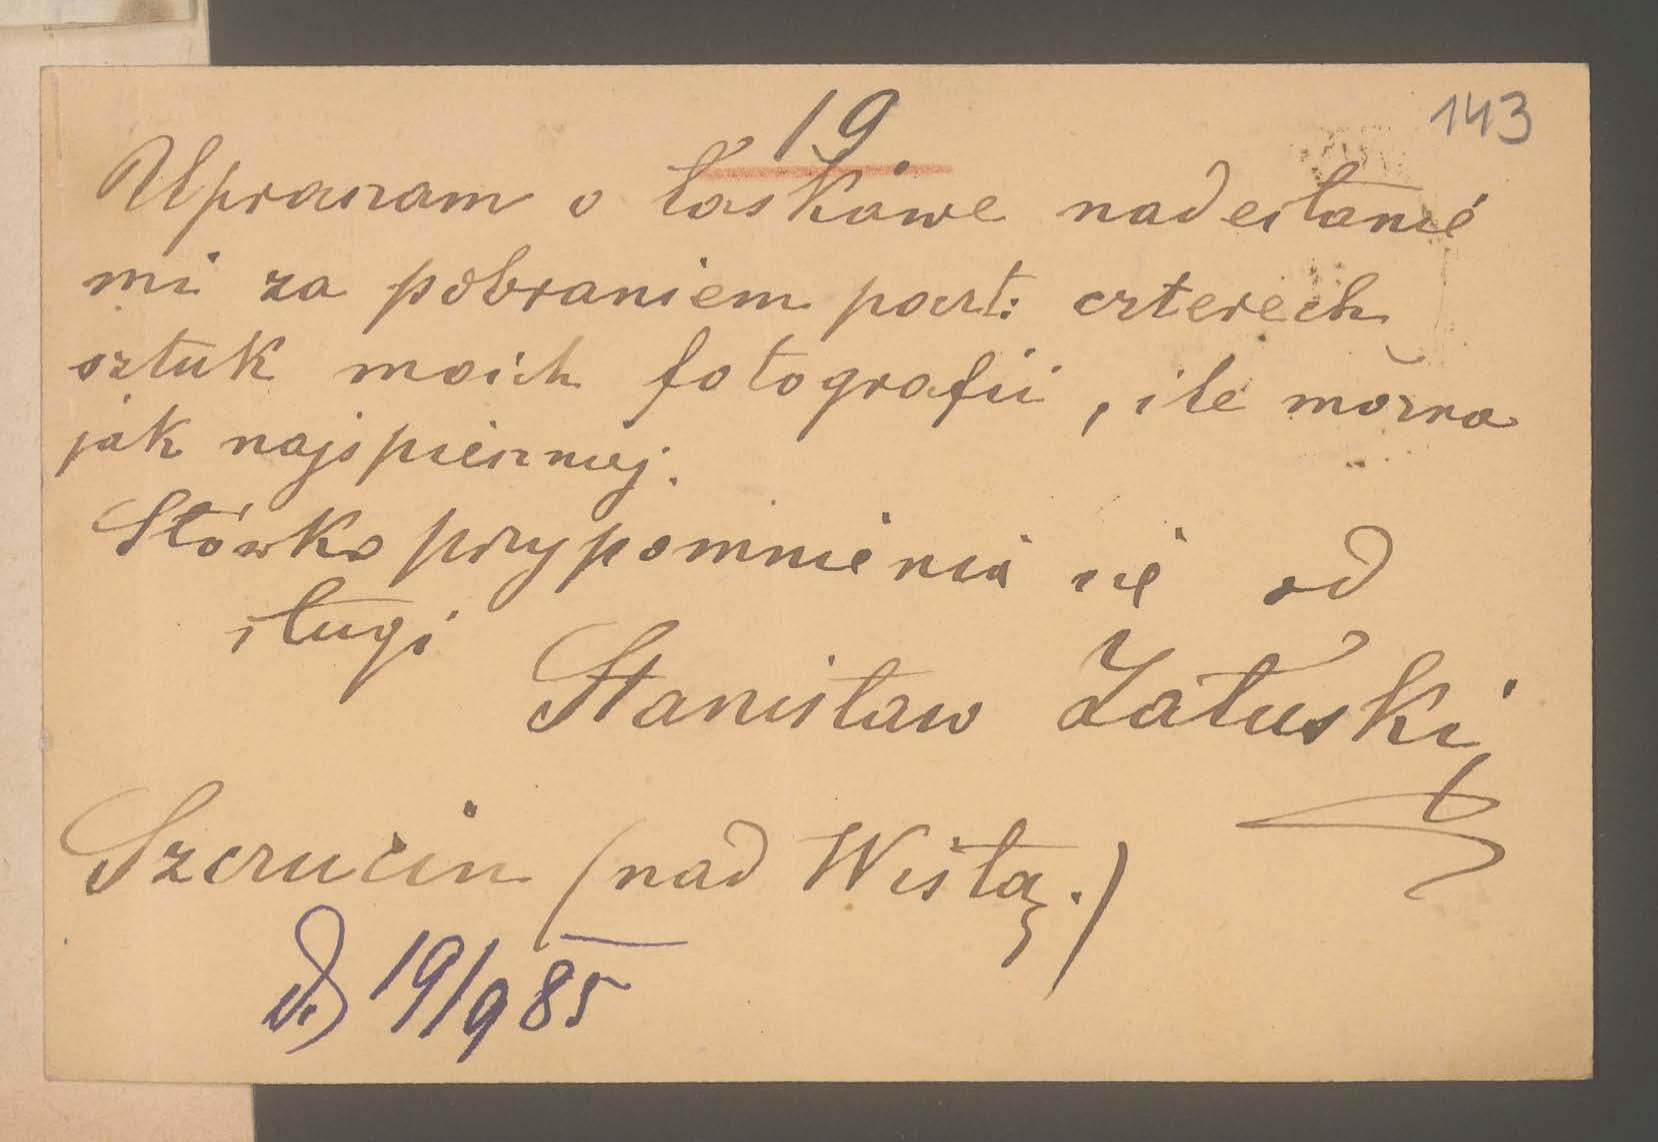 143
19.
Upraszam o łaskawe nadesłanie
mi za pobraniem poczt: czterech
sztuk moich fotografii, ile można
jak najspieszniej.
Słówko przypomnienia się od
sługi
Stanisław Załuski
Szczucin (nad Wisłą.)
19/9 85